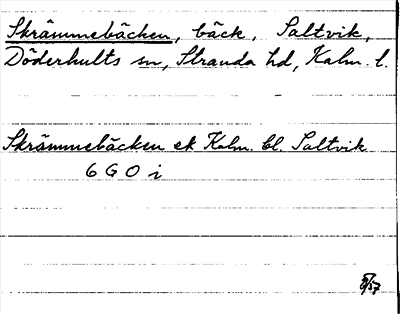 Skrämmebäcken, bäck, Saltvik,
Döderhults sn, Stranda hd, Kalm. l.
Skrämmebäcken ek Kalm. bl. Saltvik
6 G O i